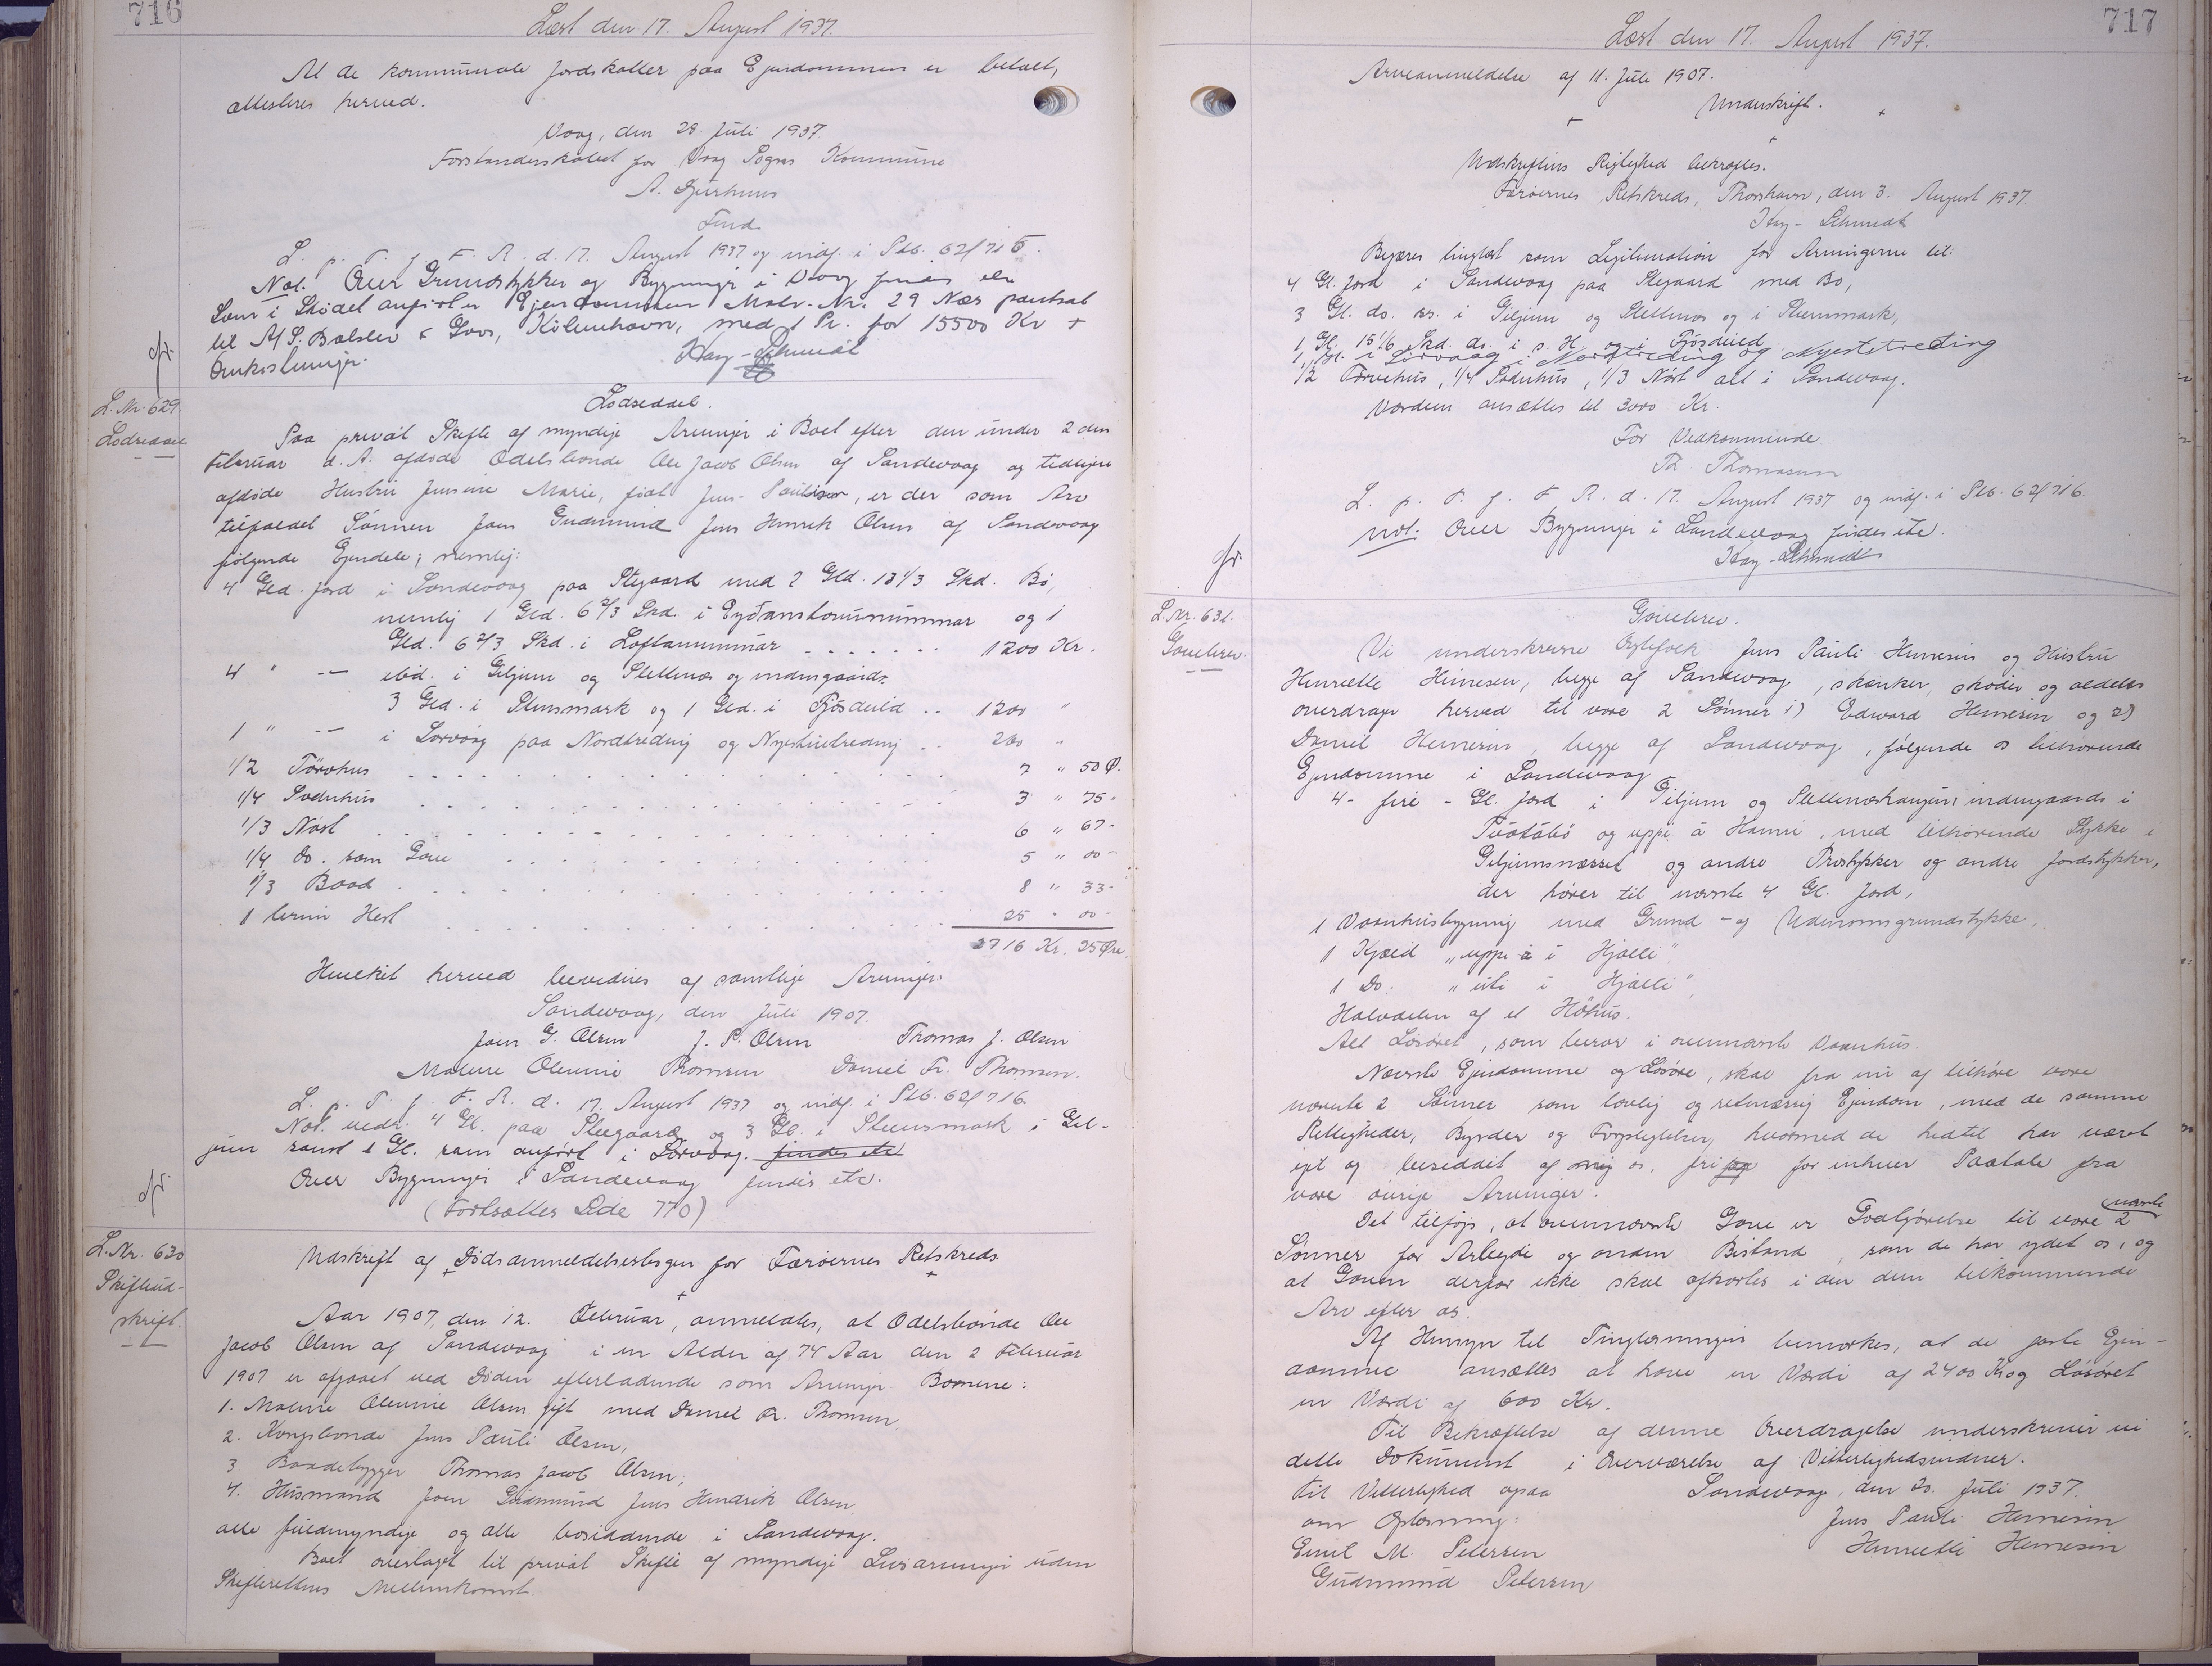 716
Læst den 17. August 1937.
At de kommunale Jordskatter paa Ejendommen er betalt,
attesteres herved.
Vaag, den 28. Juli 1937.
Forstanderskabet for Vaag Sogns Kommune
A. Djurhuus
Fmd.
L. p. T. f. F. R. d. 17. August 1937 og indf. i Ptb. 62/715.
Not. Over Grundstykker og Bygninger i Vaag findes ell
Som i Skødet anført er Ejendommen Matr. Nr. 29 pantsat
til A/S. Balslev & Goos, København, med 1 Pr. for 15500 Kr +
Omkostninger.
Hay-Schmidt
cfr.
L. Nr. 629.
Lodseddel
Lodseddel.
Paa privat Skifte af myndige Arvinger i Boet efter den under 2 den
Februar d. A. afdøde Odelsbonde Ole Jacob Olsen af Sandevaag og tidligere
afdøde Hustru Jensine Marie, født Jens-Paulisen, er der som Arv
tilfaldet Sønnen Joen Gudmund Jens Henrik Olsen af Sandevaag
følgende Ejendele; nemlig:
4 Gld. Jord i Sandevaag paa Stegaard med 2 Gld. 13 1/3 Skd. Bø,
nemlig 1 Gld. 6 2/3 Skd. i og 1
Gld. 6 2/3 Skd. i Loftanummar . . . . . . . 1200 Kr.
4 " — ibid. i Giljum og Slettnæs og indengaards
3 Gld. i Stensmark og 1 Gld. i Fjósdeild .. 1200 "
1 " — i Sørvaag paa Nordtreding og Nyestuetreding .. 200 "
1/2 Tørvhus . . . . . . . . . . 7 " 50 Ø.
1/4 Sodnhus . . . . . . . . . . 3 " 75 -
1/3 Nøst . . . . . . . . . . 6 " 67 -
1/4 do. som Gave . . . . . . . . . . 5 " 00 -
1/3 Baad . . . . . . . . . . 8 " 33 -
1 Hest . . . . . . . . . . 25 " 00 -
2716 Kr. 25 Øre.
Hvilket herved bevidnes af samtlige Arvinger.
Sandevaag, den Juli 1907.
Joen G. Olsen J. P. Olsen Thomas J. Olsen
Malene Olevine Thomsen Daniel Fr. Thomsen.
L. p. T. f. F. R. d. 17. August 1937 og indf. i Ptb. 62/716.
Not. vedr. 4 Gl. paa Stegaard og 3 Gl. i Steensmark i Gil-
jum samt 1 Gl. som anført i Sørvaag. findes etc
Over Bygninger i Sandevaag findes etc.
(Fortsættes Side 770)
cfr.
L. Nr. 630
Skifteud-
skrift.
Udskrift af Dødsanmeldelsesbogen for Færøernes Retskreds
Aar 1907, den 12. Februar, anmeldtes, at Odelsbonde Ole
Jacob Olsen af Sandevaag i en Alder af 74 Aar den 2 Februar
1907 er afgaaet ved Døden efterladende som Arvinger Børnene:
1. Malene Olevine Olsen gift med Daniel Fr. Thomsen,
2. Kongsbonde Jens Pauli Olsen,
3 Baadebygger Thomas Jacob Olsen,
4. Husmand Joen Gudmund Jens Hendrik Olsen
alle fuldmyndige og alle bosiddende i Sandevaag.
Boet overtaget til privat Skifte af myndige Livsarvinger uden
Skifterettens Mellemkomst.
717
Læst den 17. August 1937.
Arveanmeldelse af 11. Juli 1907.
Underskrift.
Udskriftens Rigtighed bekræftes.
Færøernes Retskreds, Thorshavn, den 3. August 1937.
Hay-Schmidt
Begæres tinglæst som Legitimation for Arvingerne til:
4 Gl. Jord i Sandevaag paa Stegaard med Bø,
3 Gl. do. i Giljum og Slettnæs og i Steensmark,
1 Gl. Skd. do. i s. St. og i Fjósdeild
1 Gl. i Sørvaag i Nordtreding og Nyestetreding
1/2 Tørvehus, 1/4 Sodnhus, 1/3 Nøst alt i Sandevaag.
Værdien ansættes til 3000 Kr.
For Vedkommende
Th. Thomasen
L. p. T. f. F. R. d. 17. August 1937 og indf. i Ptb. 62/716.
not: Over Bygninger i Sandevaag findes etc.
Hay-Schmidt
cfr.
L. Nr. 631.
Gavebrev.
Gavebrev.
Vi underskrevne Ægtefolk Jens Pauli Heinesen og Hustru
Henriette Heinesen, begge af Sandevaag, skænker, skøder og aldeles
overdrager herved til vore 2 Sønner 1) Edward Heinesen og 2)
Daniel Heinesen, begge af Sandevaag, følgende os tilhørende
Ejendomme i Sandevaag
4 - fire - Gl. Jord i Giljum og Slettnæshaugen; indengaards i
og uppi á Hamri, med tilhørende Stykke i
Giljumsnæsset og andre Trøstykker og andre Jordstykker,
der hører til nævnte 4 Gl. Jord,
1 Vaanhusbygning med Grund- og Udenomsgrundstykke,
1 Kjæld "uppi á i Hjalli",
1 Do. "úti i Hjalli",
Halvdelen af et Høhus.
Alt Løsøret, som beror i ovennævnte Vaanhus.
Nævnte Ejendomme og Løsøre, skal fra nu af tilhøre vore
nævnte 2 Sønner som lovlig og retmæssig Ejendom, med de samme
Rettigheder, Byrder og Forpligtelser, hvormed de hidtil har været
ejet og besiddet af mig os, fri for enhver Paatale fra
vore øvrige Arvinger.
Det tilføjes, at ovennævnte Gave er Godtgørelse til vore nævnte 2
Sønner for Arbejde og anden Bistand, som de har ydet os, og
at Gaven derfor ikke skal afkortes i den dem tilkommende
Arv efter os.
Af Hensyn til Tinglæsningen bemærkes, at de faste Ejen-
domme ansættes at have en Værdi af 2400 Kr og Løsøret
en Værdi af 600 Kr.
Til Bekræftelse af denne Overdragelse underskriver vi
dette Dokument i Overværelse af Vitterlighedsvidner.
Til Vitterlighed ogsaa Sandevaag, den 30. Juli 1937.
om Oplæsning: Jens Pauli Heinesen
Emil M. Petersen Henriette Heinesen
Gudmund Petersen